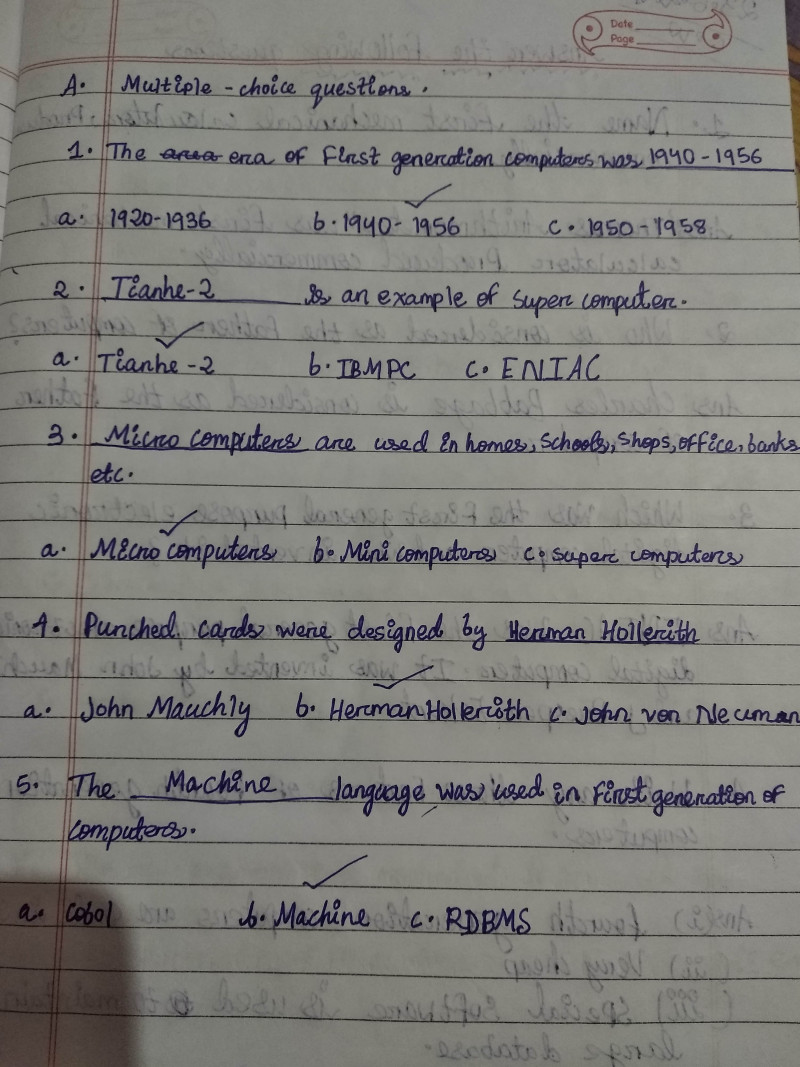 Date
Page
A. Multiple-choice questions.
1. The area era of First generation computers was 1940-1956
a. 1920-1936 b. 1940-1956 c. 1950-1958
2. Tianhe-2 is an example of super computer.
a. Tianhe-2 b. IBMPC c. ENIAC
3. Micro computers are used in homes, schools, shops, office, banks
etc.
a. Micro computers b. Mini computers c. super computers
4. Punched cards were designed by Herman Hollerith
a. John Mauchly b. Herman Hollerith c. John von Neuman
5. The Machine language was used in First generation of
computers.
a. cobol b. Machine c. RDBMS